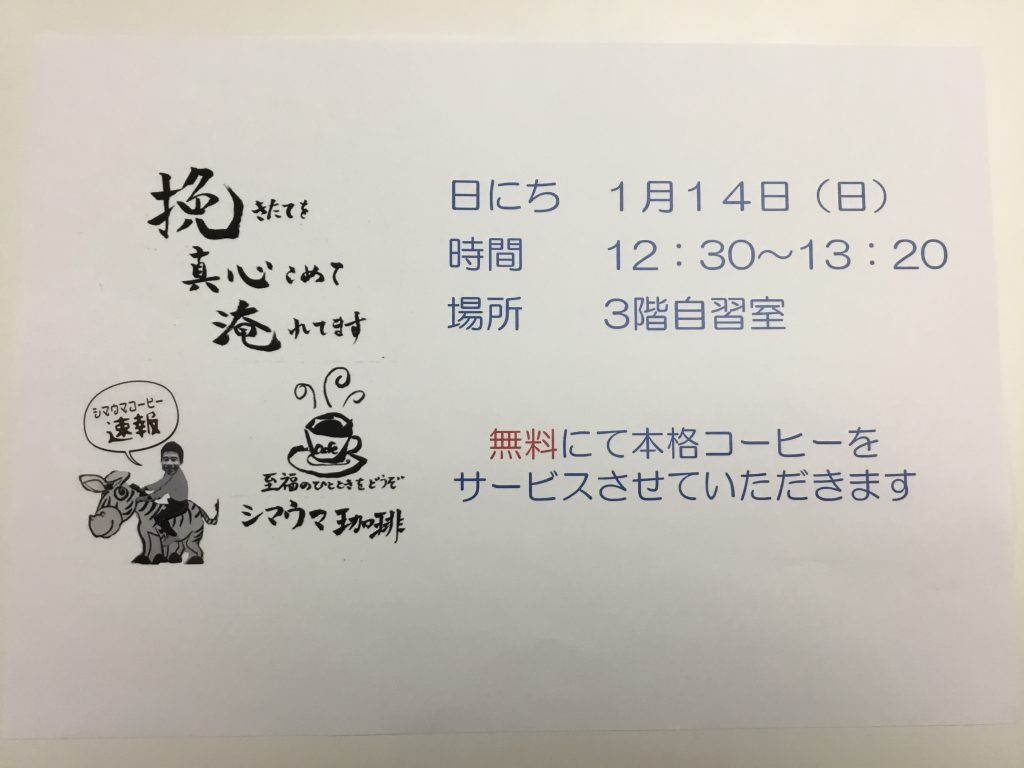 挽きたてを
真心こめて
淹れてます
シマウマコーヒー
速報
Cafe
至福のひとときをどうぞ
シマウマ珈琲
日にち　１月１４日（日）
時間　　12：30～13：20
場所　　3階自習室
無料にて本格コーヒーを
サービスさせていただきます